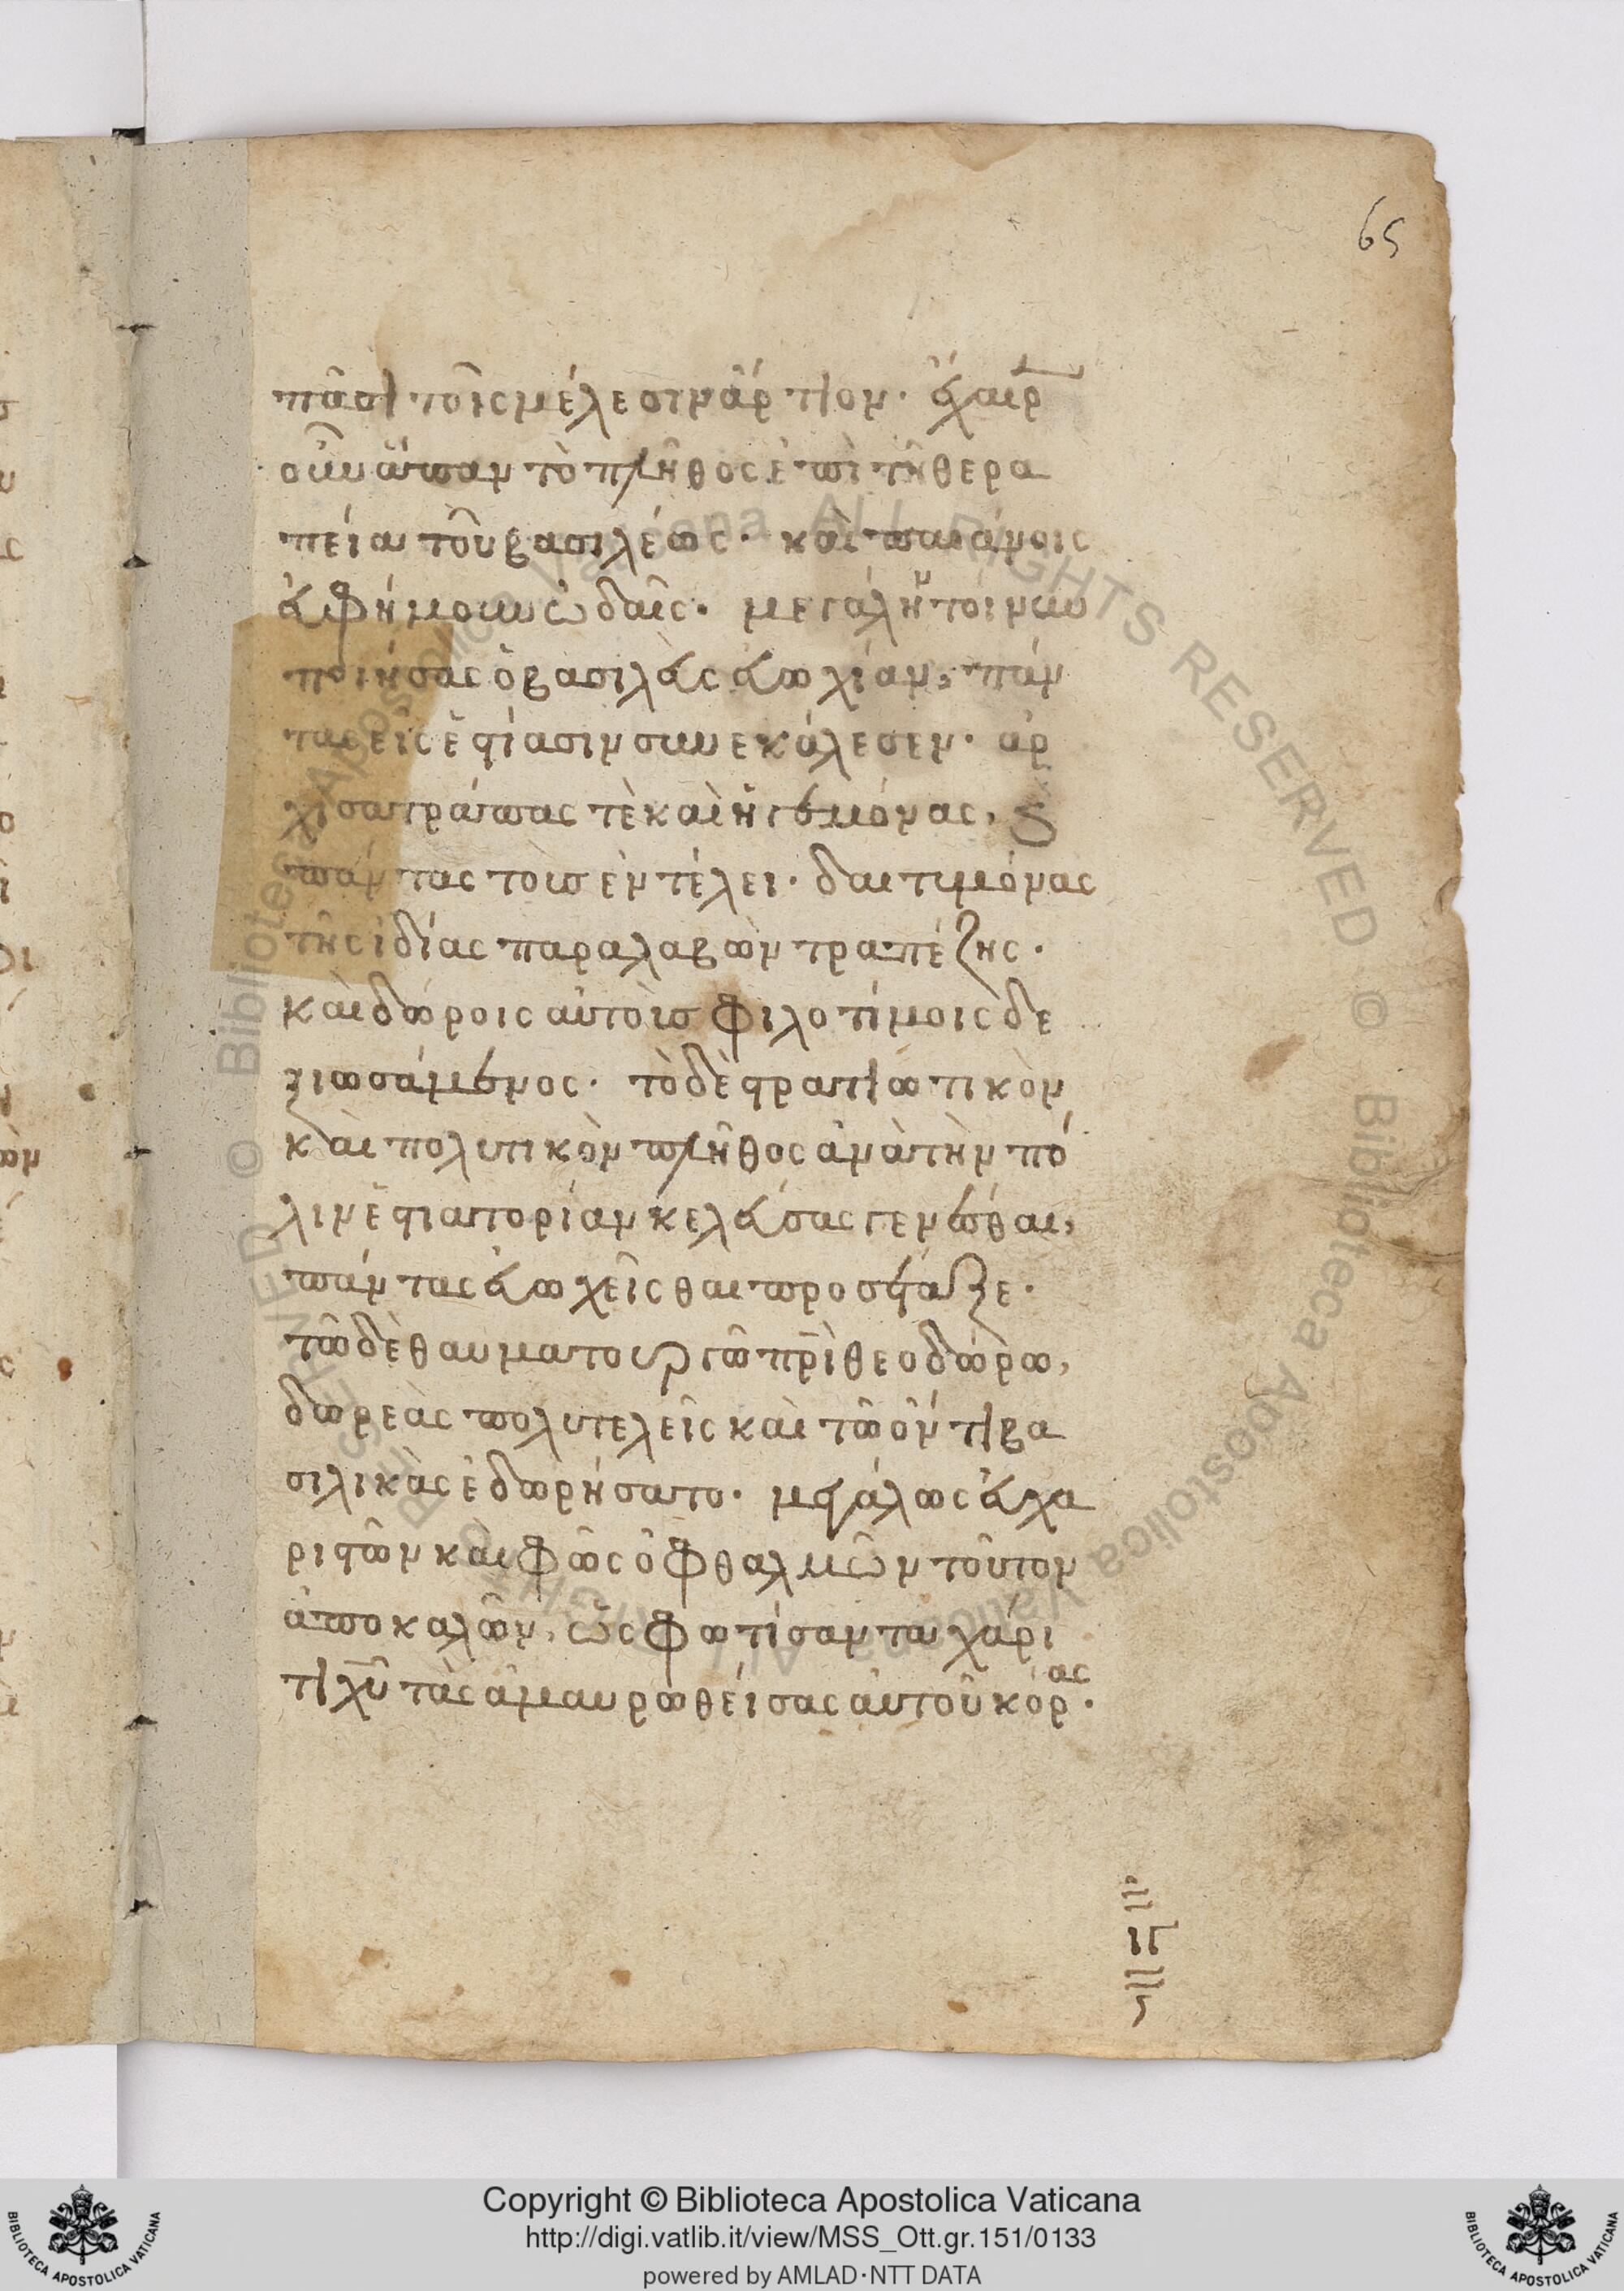 65
πᾶσι τοῖς μέλεσιν ἄρτιον· ἔχαιρ
οὖν ἅπαν τὸ πλῆθος ἐπὶ τῆ θερα
πεία τοῦ βασιλέως· καὶ παιάνοις
εὐφήμουν ὠδαῖς· μεγάλην τοίνυν
ποιήσας ὁ βασιλεὺς εὐωχίαν, πάν
τας εἰς ἑστίασιν συνεκάλεσεν· ἀρ
χισατράπας τὲ καὶ ἡγεμόνας, κ
πάντας τοὺς ἐν τέλει· δαιτυμόνας
τῆς ἰδίας παραλαβὼν τραπέζης·
καὶ δώροις αὐτοὺς φιλοτίμοις δε
ξιωσάμενος· τὸ δὲ στρατιωτικὸν
καὶ πολιτικὸν πλῆθος ἀνὰ τὴν πό
λιν ἑστιατορίαν κελεύσας γενέσθαι,
πάντας εὐωχεῖσθαι προσέταξε·
τῶ δὲ θαυματουργῶ πρι θεοδώρω,
δωρεὰς πολυτελεῖς καὶ τῶ ὄντι βα
σιλικὰς ἐδωρήσατο· μεγάλως εὐχα
ριστῶν καὶ φῶς ὀφθαλμῶν τοῦτον
ἀποκαλῶν, ὡς φωτίσαντα χάρι
τι χυ τὰς ἀμαυρωθείσας αὐτοῦ κόρας·
Copyright © Biblioteca Apostolica Vaticana
http://digi.vatlib.it/view/MSS_Ott.gr.151/0133
powered by AMLAD·NTT DATA
BIBLIOTECA APOSTOLICA VATICANA
BIBLIOTECA APOSTOLICA VATICANA